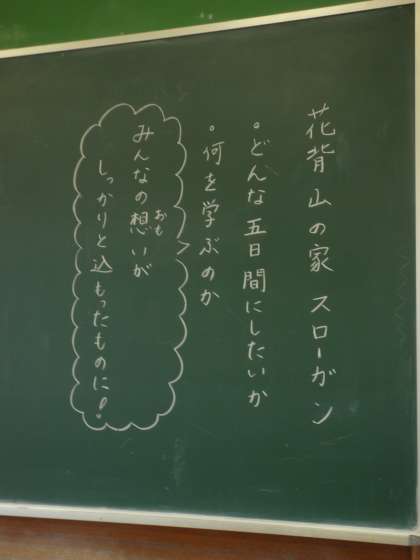 花背山の家 スローガン
。どんな五日間にしたいか
。何を学ぶのか
みんなの想いが
おも
しっかりと込もったものに!